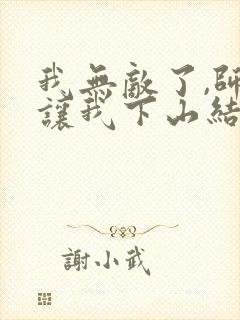 我無敵了,師
讓我下山結
謝小武